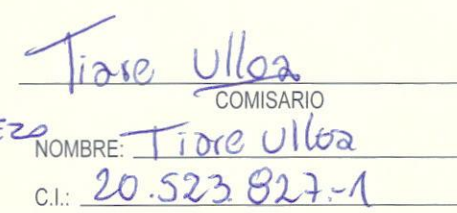 Tiare Ulloa
COMISARIO
EZO
NOMBRE: Tiare Ulloa
C.I.: 20.523.827-1